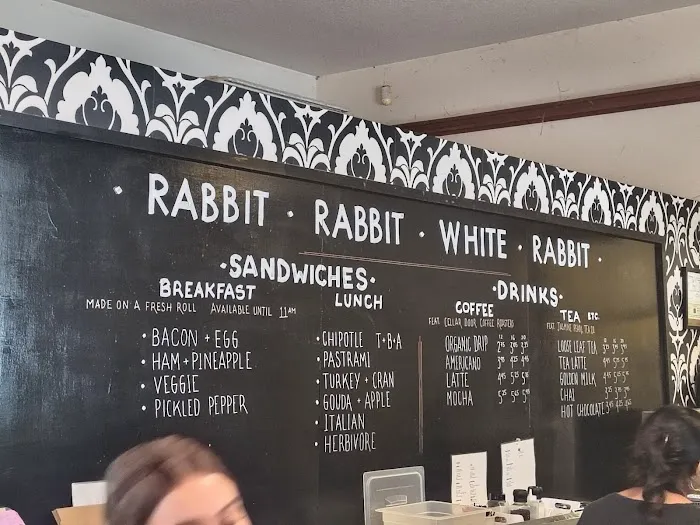 · RABBIT · RABBIT · WHITE · RABBIT ·
·SANDWICHES·
BREAKFAST
MADE ON A FRESH ROLL AVAILABLE UNTIL 11AM
· BACON + EGG
· HAM + PINEAPPLE
· VEGGIE
· PICKLED PEPPER
LUNCH
· CHIPOTLE T+B+A
· PASTRAMI
· TURKEY + CRAN
· GOUDA + APPLE
· ITALIAN
· HERBIVORE
·DRINKS·
COFFEE
FEAT. CELLAR DOOR COFFEE ROASTERS
12 16 20
ORGANIC DRIP
AMERICANO
LATTE
MOCHA
TEA ETC.
FEAT.
LOOSE LEAF TEA
TEA LATTE
GOLDEN MILK
CHAI
HOT CHOCOLATE